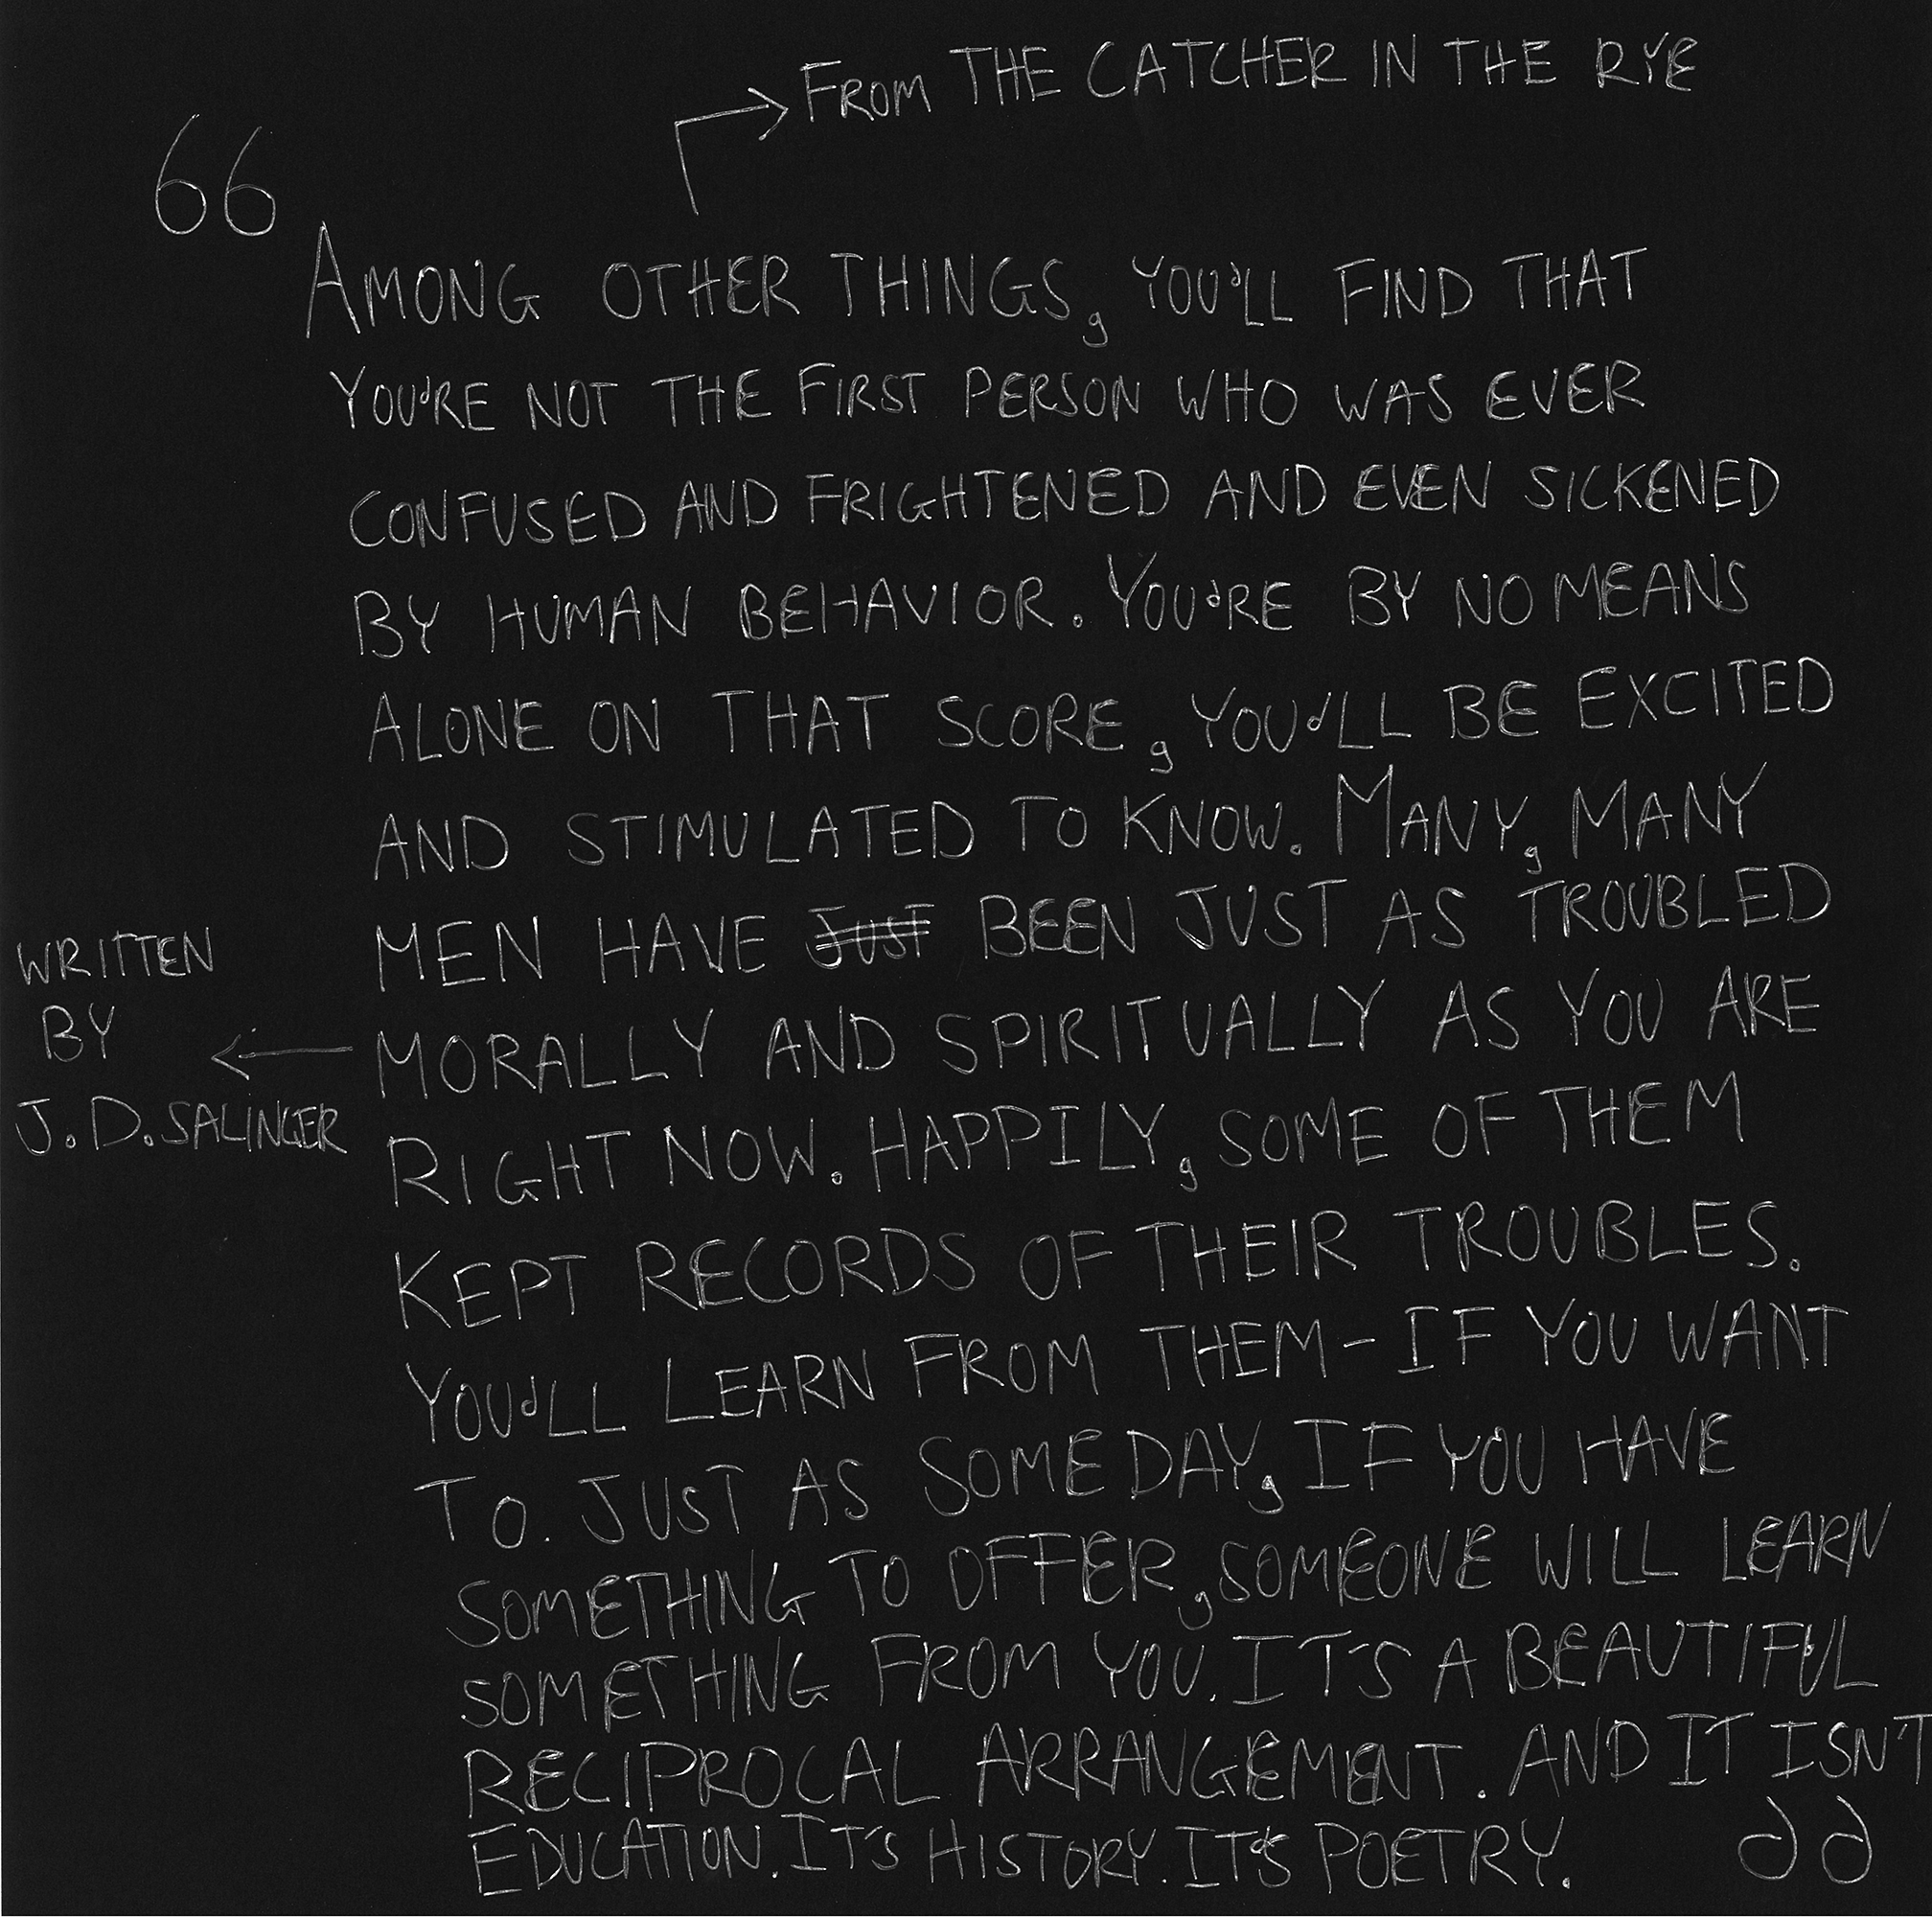 From THE CATCHER IN THE RYE
“
AMONG OTHER THINGS, YOU'LL FIND THAT
YOU'RE NOT THE FIRST PERSON WHO WAS EVER
CONFUSED AND FRIGHTENED AND EVEN SICKENED
BY HUMAN BEHAVIOR. YOU'RE BY NO MEANS
ALONE ON THAT SCORE, YOU'LL BE EXCITED
AND STIMULATED TO KNOW. MANY, MANY
MEN HAVE JUST BEEN JUST AS TROUBLED
MORALLY AND SPIRITUALLY AS YOU ARE
RIGHT NOW. HAPPILY, SOME OF THEM
KEPT RECORDS OF THEIR TROUBLES.
YOU'LL LEARN FROM THEM - IF YOU WANT
TO. JUST AS SOMEDAY, IF YOU HAVE
SOMETHING TO OFFER, SOMEONE WILL LEARN
SOMETHING FROM YOU. IT'S A BEAUTIFUL
RECIPROCAL ARRANGEMENT. AND IT ISN'T
EDUCATION. IT'S HISTORY. IT'S POETRY.
”
WRITTEN
BY
J.D. SALINGER